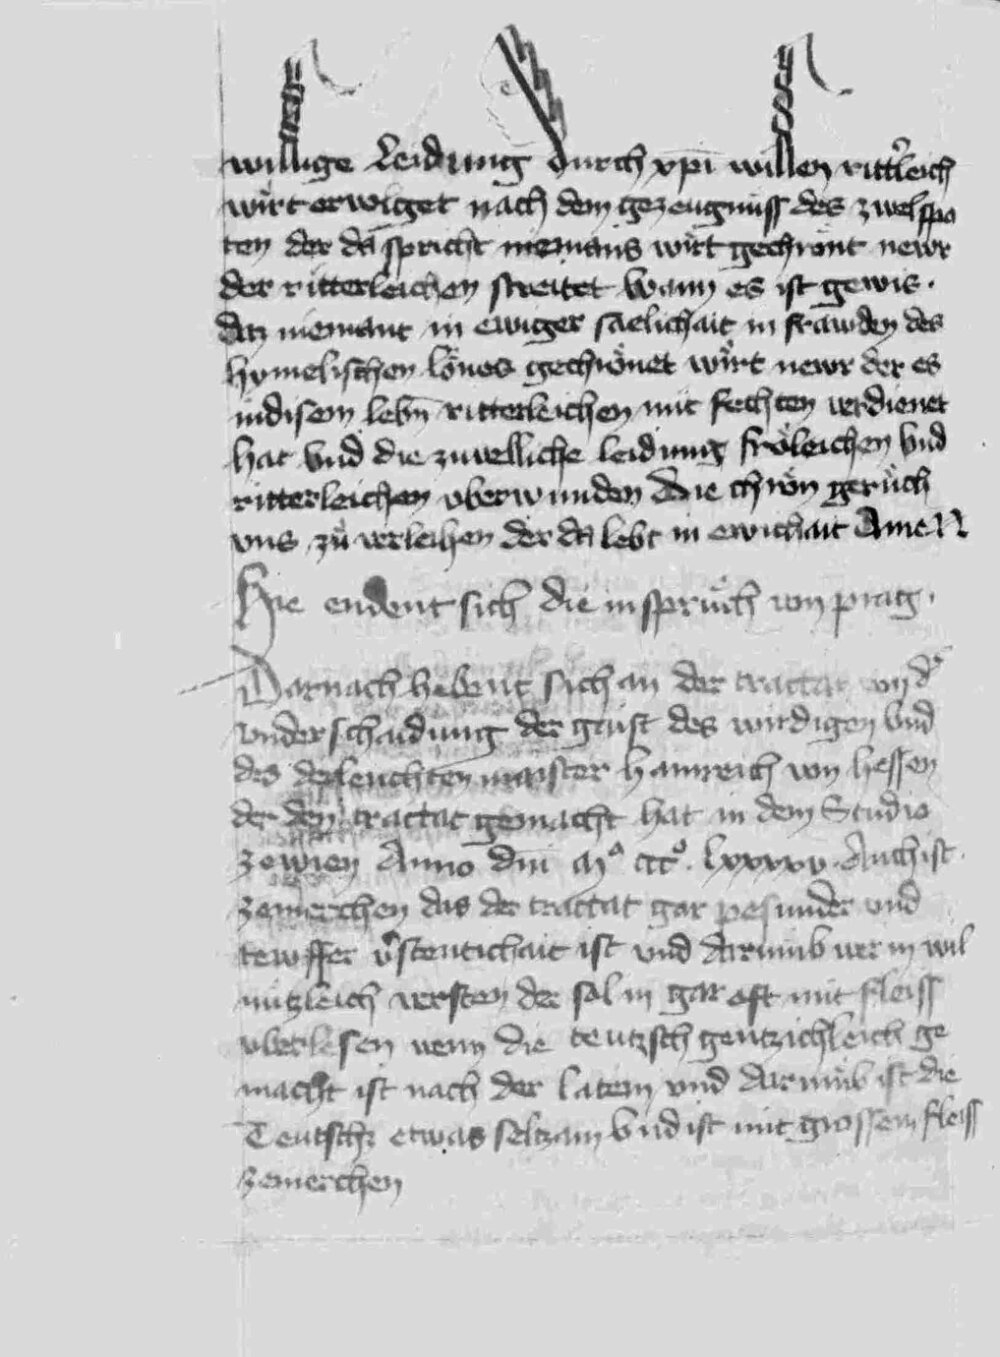 willige leidung durch xpi willen ritt'leich
wirt erwiget nach dem gezeugnüss des zwelfpo
ten der da spricht niemans wirt gechrönt newr
der ritterleichen streitet wann es ist gewis.
daz niemant in ewiger saelichait in frawden des
hymelischen lönes gechrönet wirt newr der es
indisem lebn ritterleichen mit fechten verdienet
hat vnd die zuuelliche leidung fröleichen vnd
ritterleichen vberwunden die chrön gerüch
vns zů verleihen der da lebt in ewichait AmeN
Hie endent sich die inspruch von prag.
Darnach hebent sich an der tractat von d'
vnderschaidung der gaist des wirdigen vnd
des derleuchten maister hainreich von hessen
der den tractat gemacht hat in dem Studio
ze wien Anno dni mº cccº. lxxxxv. Auch ist
zemerchen das der tractat gar pesunder vnd
tewffer v'stentichait ist vnd darumb wer in wil
nützleich versten der sol in gar oft mit fleiss
vberlesen wenn die teutzsch gentzichleich ge
macht ist nach der latein vnd darumb ist die
Teutsche etwas seltzam vnd ist mit grossem fleiss
zemerchen